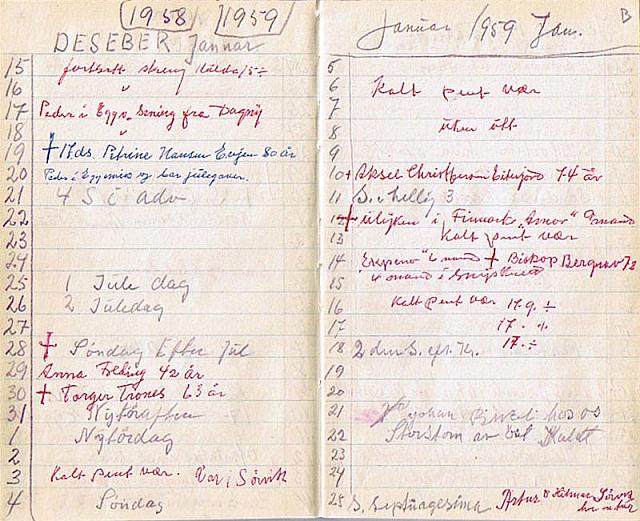 1958 1959
DESEBER Januar
15 fortsatt streng kulda 15÷
16 "
17 Peder i Eggvn fra Dagny
18 "
19 † 17ds. Petrine Hansen 80 år
20 Peder i og har julegaver.
21 4 S i adv
22
23
24
25 1 Jule dag
26 2 Juledag
27
28 † Søndag Efter Jul
29 Anna 42 år
30 † Torger Trones 63 år
31 Nytåraften
1 Nytårdag
2
3 Kalt pent vær. Var i Sørvik
4 Søndag
Januar 1959 Jan. B
5
6 Kalt pent vær
7
8
9
10 † Aksel Christferson 74 år
11 S. e hellig 3
12 † ulyken i Finmark 9 mand
13 Kalt pent vær
14 6 mand † Biskop Bergrav 72
15 4 mand i
16 Kalt pent vær 17.9. ÷
17 17. %
18 2 den S. eft. K. 17. ÷
19
20
21 Johan hos os
22 Storstorm av
23
24
25 S. Septuagesima Artur o Hilmar Sørvik